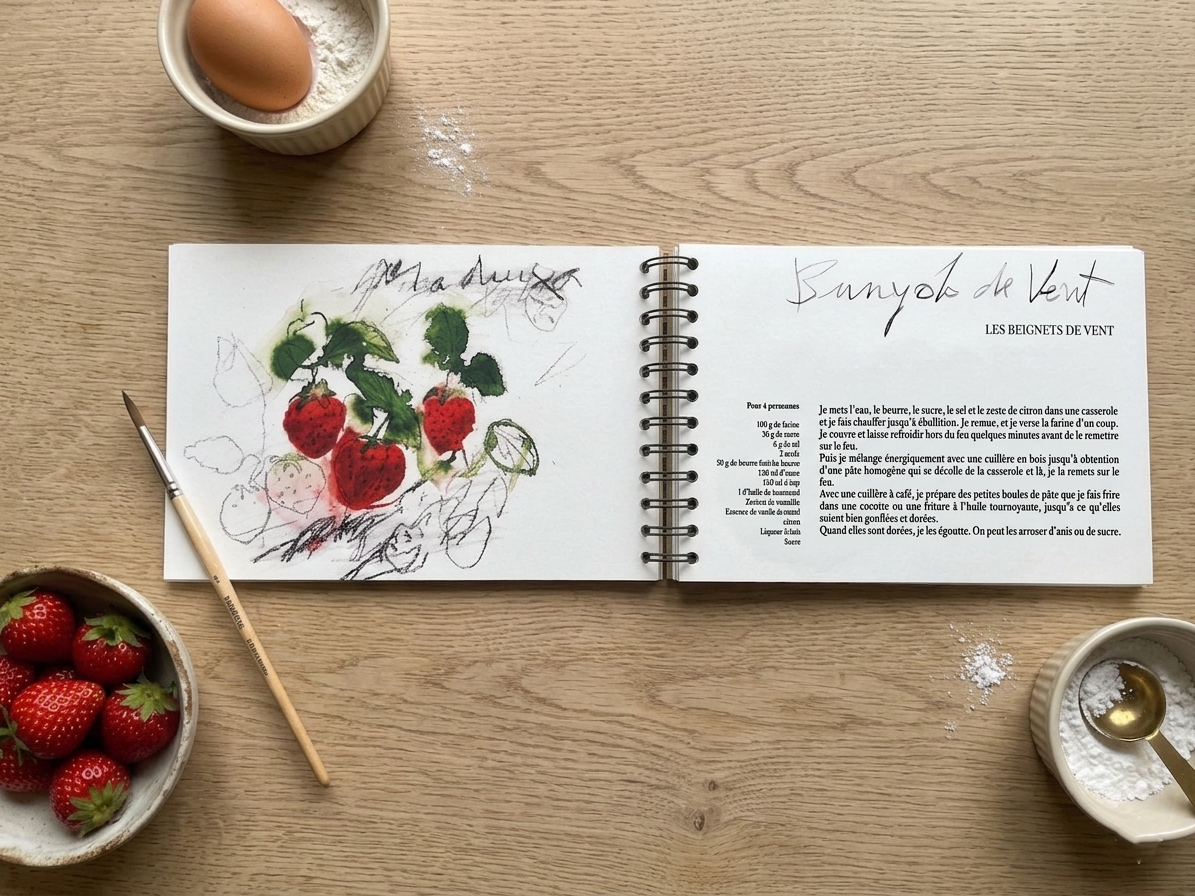 Maduixa
Bunyols de Vent
LES BEIGNETS DE VENT
Pour 4 personnes
100 g de farine
36 g de sucre
6 g de sel
2 œufs
50 g de beurre
1 d'huile de
de vanille
Essence de vanille
citron
Liqueur
Sucre
Je mets l'eau, le beurre, le sucre, le sel et le zeste de citron dans une casserole
et je fais chauffer jusqu'à ébullition. Je remue, et je verse la farine d'un coup.
Je couvre et laisse refroidir hors du feu quelques minutes avant de le remettre
sur le feu.
Puis je mélange énergiquement avec une cuillère en bois jusqu'à obtention
d'une pâte homogène qui se décolle de la casserole et là, je la remets sur le
feu.
Avec une cuillère à café, je prépare des petites boules de pâte que je fais frire
dans une cocotte ou une friture à l'huile tournoyante, jusqu"à ce qu'elles
suient bien gonflées et dorées.
Quand elles sont dorées, je les égoutte. On peut les arroser d'anis ou de sucre.